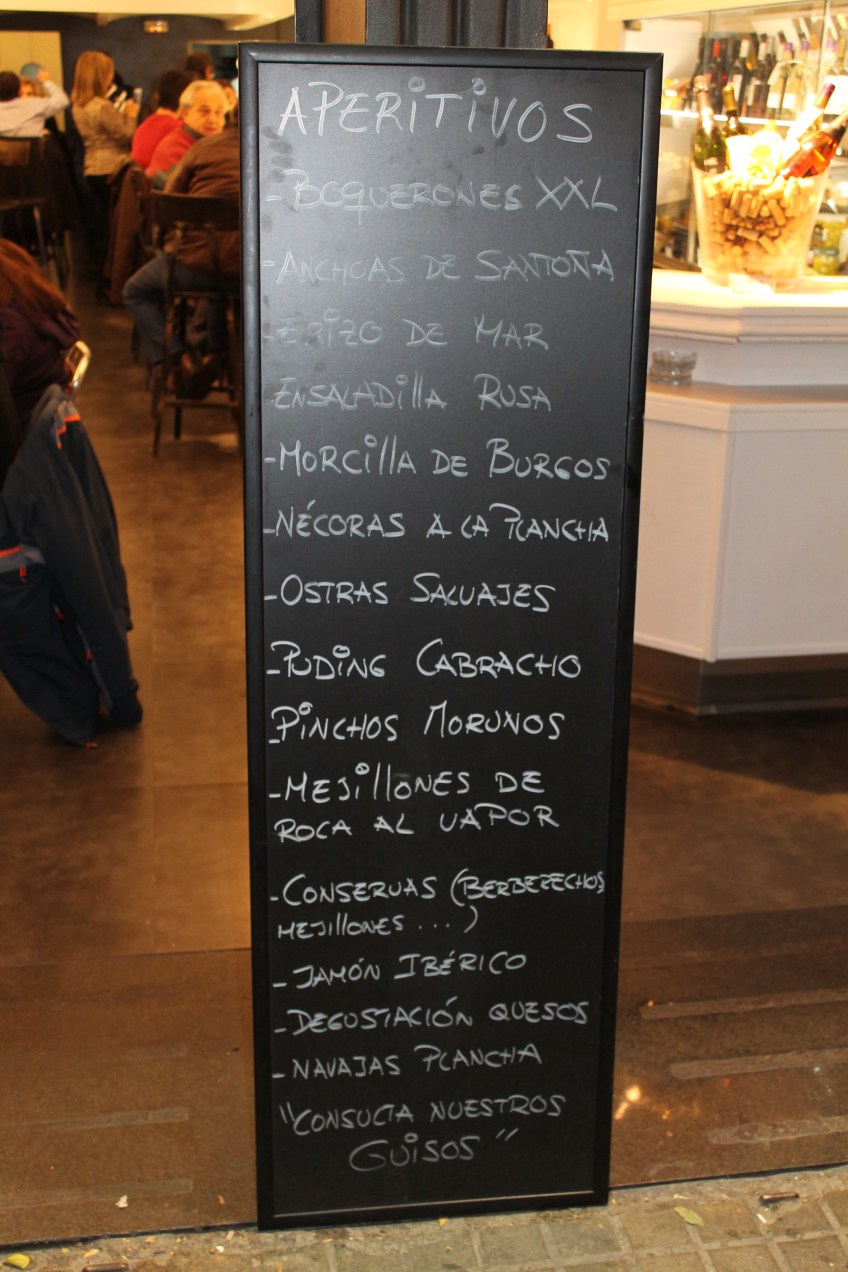 APERITIVOS
- BOQUERONES XXL
- ANCHOAS DE SANTOÑA
- ERIZO DE MAR
- ENSALADILLA RUSA
- MORCILLA DE BURGOS
- NÉCORAS A LA PLANCHA
- OSTRAS SALVAJES
- PUDING CABRACHO
- PINCHOS MORUNOS
- MEJILLONES DE
ROCA AL VAPOR
- CONSERVAS (BERBERECHOS
MEJILLONES ... )
- JAMÓN IBÉRICO
- DEGUSTACIÓN QUESOS
- NAVAJAS PLANCHA
"CONSULTA NUESTROS
GUISOS"